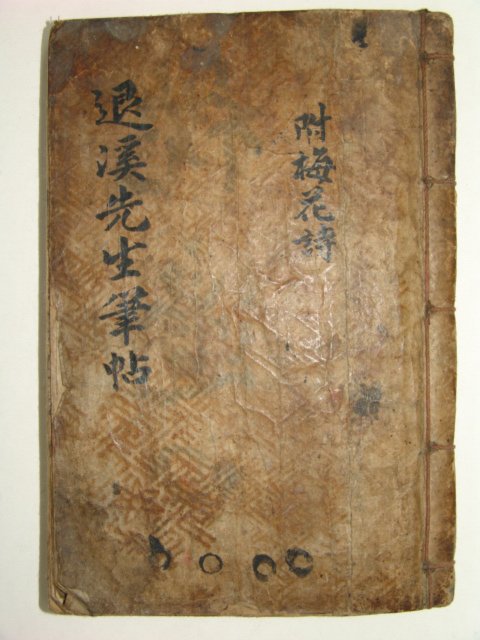 附梅花詩
退溪先生筆帖